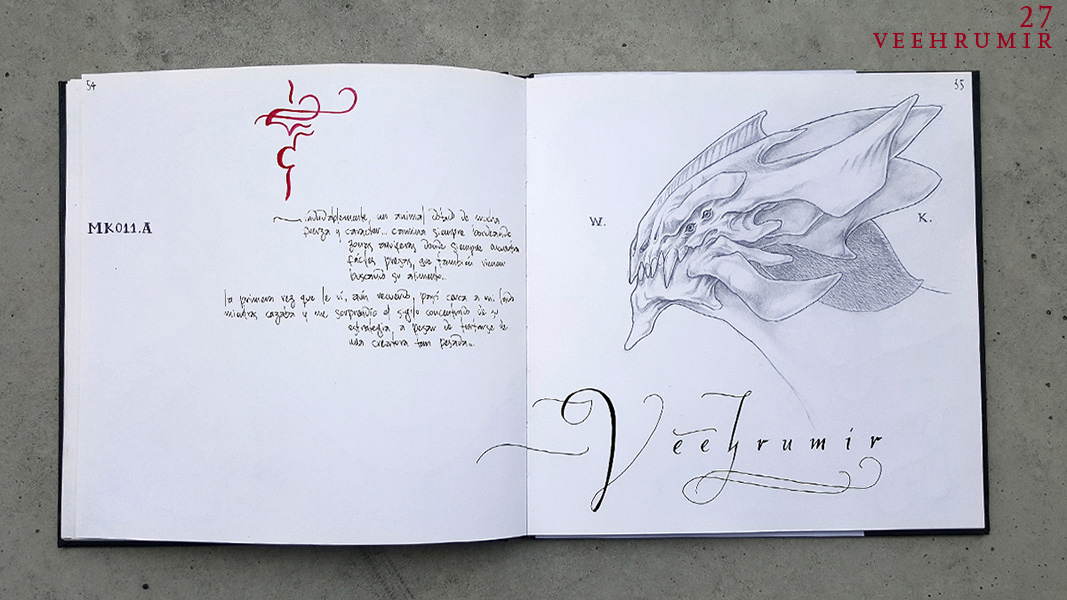 27
VEEHRUMIR
54
MK011.A
...indudablemente, un animal de mucha
fuerza y caracter... camina siempre bordeando
zonas donde siempre encuentra
fáciles presas, que también vienen
buscando su alimento...
la primera vez que le ví, aún recuerdo, pasó cerca a mi lado
mientras cazaba y me sorprendió el sigilo concentrado de su
estrategia, a pesar de tratarse de
una creatura tan pesada...
55
W.
K.
Veehrumir